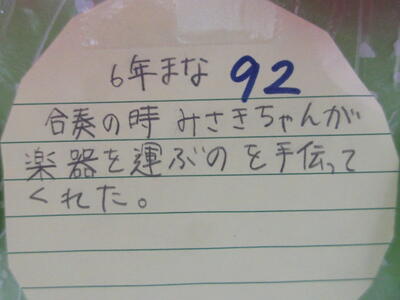 6年まな 92
合奏の時 みさきちゃんが
楽器を運ぶのを手伝って
くれた。